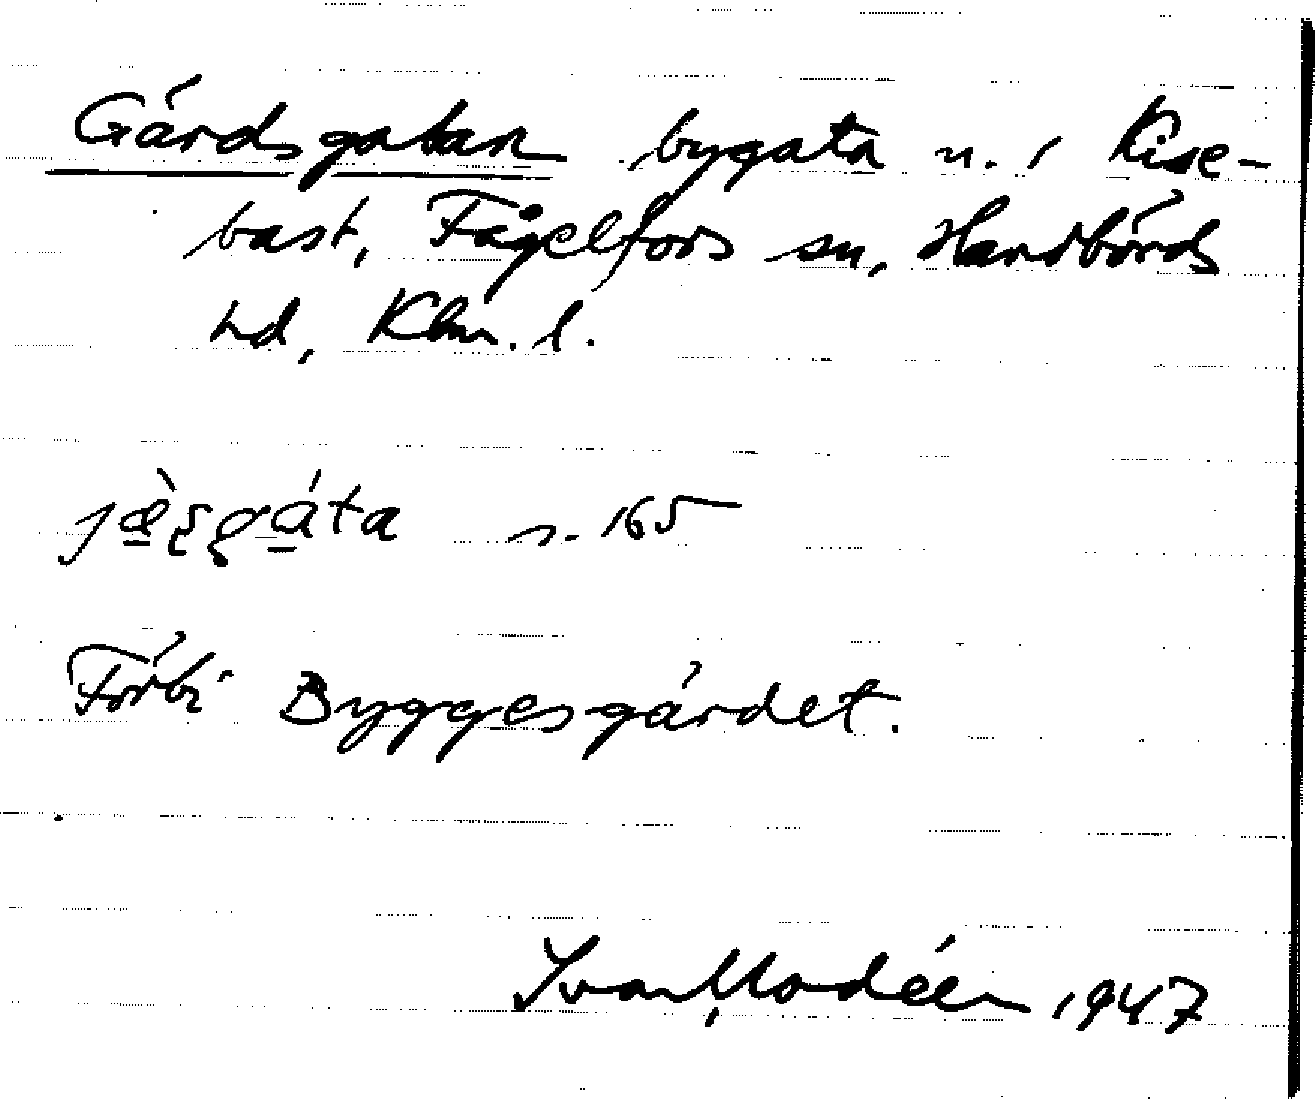 Gärdsgatan bygata n. i Kise-
bast, Fågelfors sn, Handbörds
hd, Klm. l.
s. 165
Förbi Byggesgärdet.
Ivar Modéer 1947